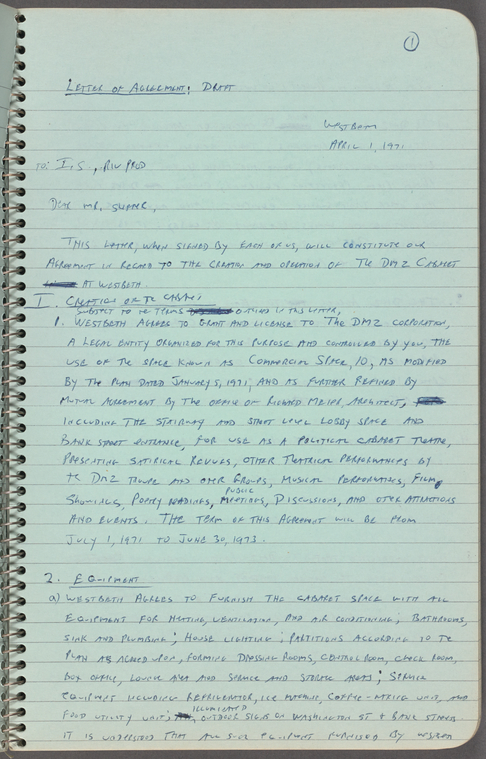 1
LETTER OF AGREEMENT: DRAFT
WESTBETH
APRIL 1, 1971
TO: I.S., RIV PROD
DEAR MR.
THIS LETTER, WHEN SIGNED BY EACH OF US, WILL CONSTITUTE OUR
AGREEMENT IN REGARD TO THE CREATION AND OPERATION OF THE DMZ CABARET
AT WESTBETH.
I. CREATION OF THE CABARET
SUBJECT TO THE TERMS OUTLINED IN THIS LETTER,
1. WESTBETH AGREES TO GRANT AND LICENSE TO THE DMZ CORPORATION,
A LEGAL ENTITY ORGANIZED FOR THIS PURPOSE AND CONTROLLED BY YOU, THE
USE OF THE SPACE KNOWN AS COMMERCIAL SPACE, 10, AS MODIFIED
BY THE PLAN DATED JANUARY 5, 1971, AND AS FURTHER REFINED BY
MUTUAL AGREEMENT BY THE OFFICE OF RICHARD MEIER, ARCHITECT,
INCLUDING THE STAIRWAY AND STREET LEVEL LOBBY SPACE AND
BANK STREET ENTRANCE, FOR USE AS A POLITICAL CABARET THEATRE,
PRESENTING SATIRICAL REVUES, OTHER THEATRICAL PERFORMANCES BY
THE DMZ TROUPE AND OTHER GROUPS, MUSICAL PERFORMANCES, FILM
PUBLIC
SHOWINGS, POETRY READINGS, MEETINGS, DISCUSSIONS, AND OTHER ATTRACTIONS
AND EVENTS. THE TERM OF THIS AGREEMENT WILL BE FROM
JULY 1, 1971 TO JUNE 30, 1973.
2. EQUIPMENT
a) WESTBETH AGREES TO FURNISH THE CABARET SPACE WITH ALL
EQUIPMENT FOR HEATING, VENTILATION, AND AIR CONDITIONING; BATHROOMS,
SINK AND PLUMBING; HOUSE LIGHTING; PARTITIONS ACCORDING TO THE
PLAN AS AGREED UPON, FORMING DRESSING ROOMS, CONTROL ROOM, CHECK ROOM,
BOX OFFICE, LOUNGE AREA AND SERVICE AND STORAGE AREAS; SERVICE
EQUIPMENT INCLUDING REFRIGERATOR, ICE MACHINE, COFFEE-MAKING UNIT, AND
ILLUMINATED
FOOD UTILITY UNIT; OUTDOOR SIGNS ON WASHINGTON ST & BANK STREET.
IT IS UNDERSTOOD THAT ALL SUCH EQUIPMENT FURNISHED BY WESTBETH